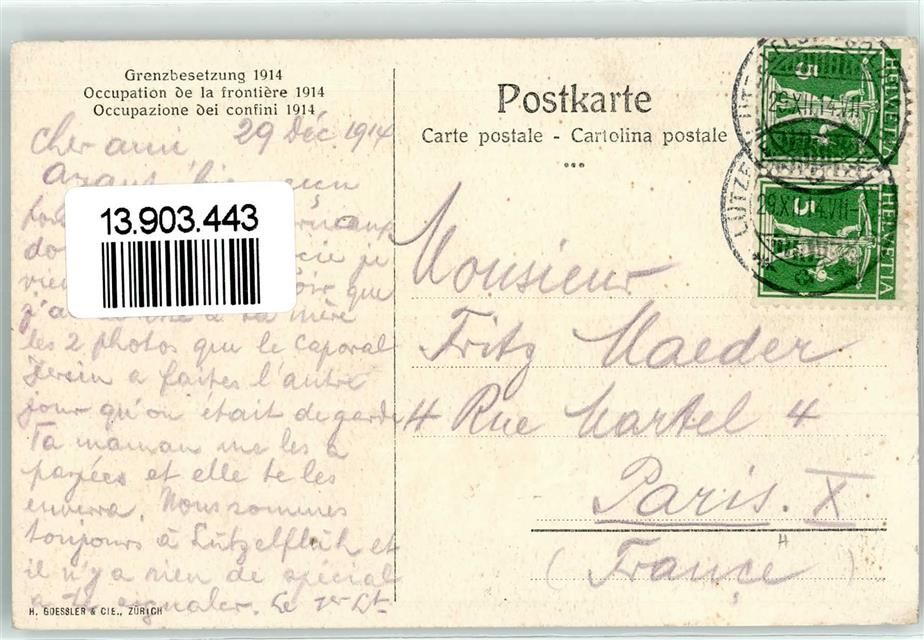 Grenzbesetzung 1914
Occupation de la frontière 1914
Occupazione dei confini 1914
29 Déc. 1914
Cher ami
Ayant bien reçu
13.903.443
je
vien que
j'a à ta mère
les 2 photos que le caporal
Jersin a faites l'autre
jour qu'on était de garde
Ta maman me les a
payées et elle te les
enverra. Nous sommes
toujours à Lützelflüh et
il n'y a rien de spécial
à te signaler. Le 1er Lt.
H. GUESSLER & CIE., ZÜRICH
Postkarte
Carte postale - Cartolina postale
Monsieur
Fritz Maeder
4 Rue Martel 4
Paris. X
(France)
HELVETIA
5
29.XII.14.VII
HELVETIA
5
29.XII.14.VII-